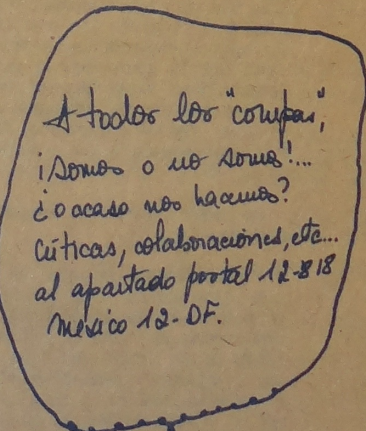 A todos los "compas",
¡Somos o no somos!...
¿o acaso nos hacemos?
Críticas, colaboraciones, etc...
al apartado postal 12-818
Mexico 12-DF.